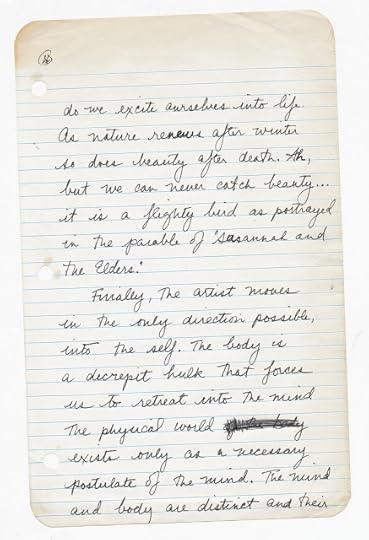 do we excite ourselves into life.
As nature renews after winter
so does beauty after death. Ah,
but we can never catch beauty...
it is a flighty bird as portrayed
in the parable of "Susannah and
the Elders."
Finally, the artist moves
in the only direction possible,
into the self. The body is
a decrepit hulk that forces
us to retreat into the mind
The physical world
exists only as a necessary
postulate of the mind. The mind
and body are distinct and their